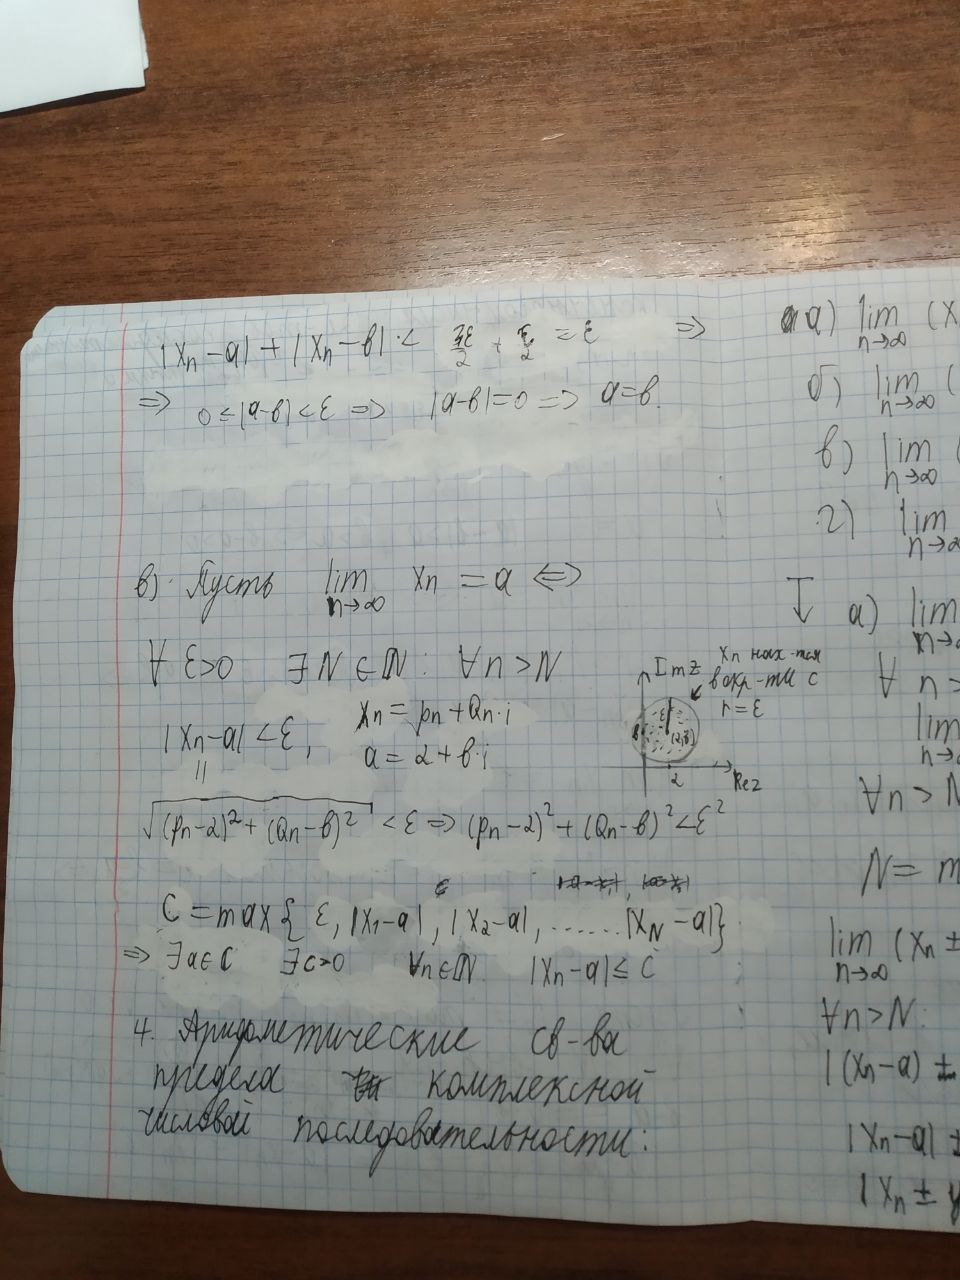 |xn-a| + |xn-b| < ε/2 + ε/2 = ε ⇒
⇒ 0 ≤ |a-b| < ε ⇒ |a-b|=0 ⇒ a=b.
в) Пусть lim n→∞ xn = a ⇔
∀ ε>0 ∃ N ∈ ℕ: ∀n > N
|xn-a| < ε, xn = pn + Qn·i
|| a = 2 + b·i
√((pn-2)² + (Qn-b)²) < ε ⇒ (pn-2)² + (Qn-b)² < ε²
Im z
xn нах-тся
в окр-ти с
r = ε
ε
2
Re z
C = max{ ε, |x1-a|, |x2-a|, ...... |xN-a|}
⇒ ∃ a∈C ∃ c>0 ∀n∈ℕ |xn-a| ≤ C
4. Арифметические св-ва
предела комплексной
числовой последовательности:
а) lim n→∞ (x
б) lim n→∞ (
в) lim n→∞ (
г) lim n→∞
а) lim n→∞
∀ n >
lim n→∞
∀n > N
N = m
lim n→∞ (xn ±
∀n > N:
|(xn-a) ±
|xn-a| +
|xn ±